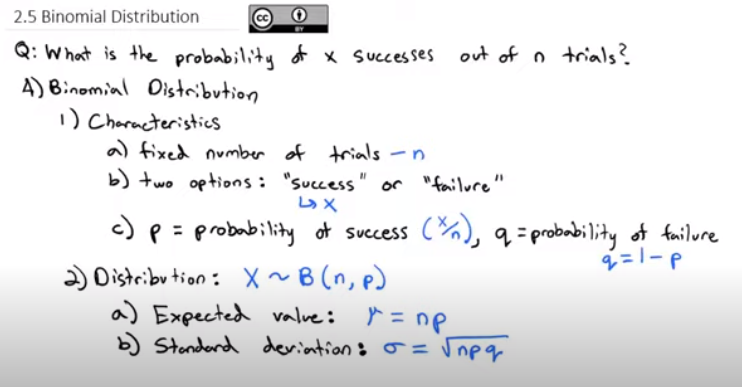 2.5 Binomial Distribution
cc BY
Q: What is the probability of x successes out of n trials?
4) Binomial Distribution
1) Characteristics
a) fixed number of trials – n
b) two options: "success" or "failure"
↳ x
c) p = probability of success (x/n), q = probability of failure
q = 1 - p
2) Distribution: X ~ B(n, p)
a) Expected value: μ = np
b) Standard deviation: σ = √npq